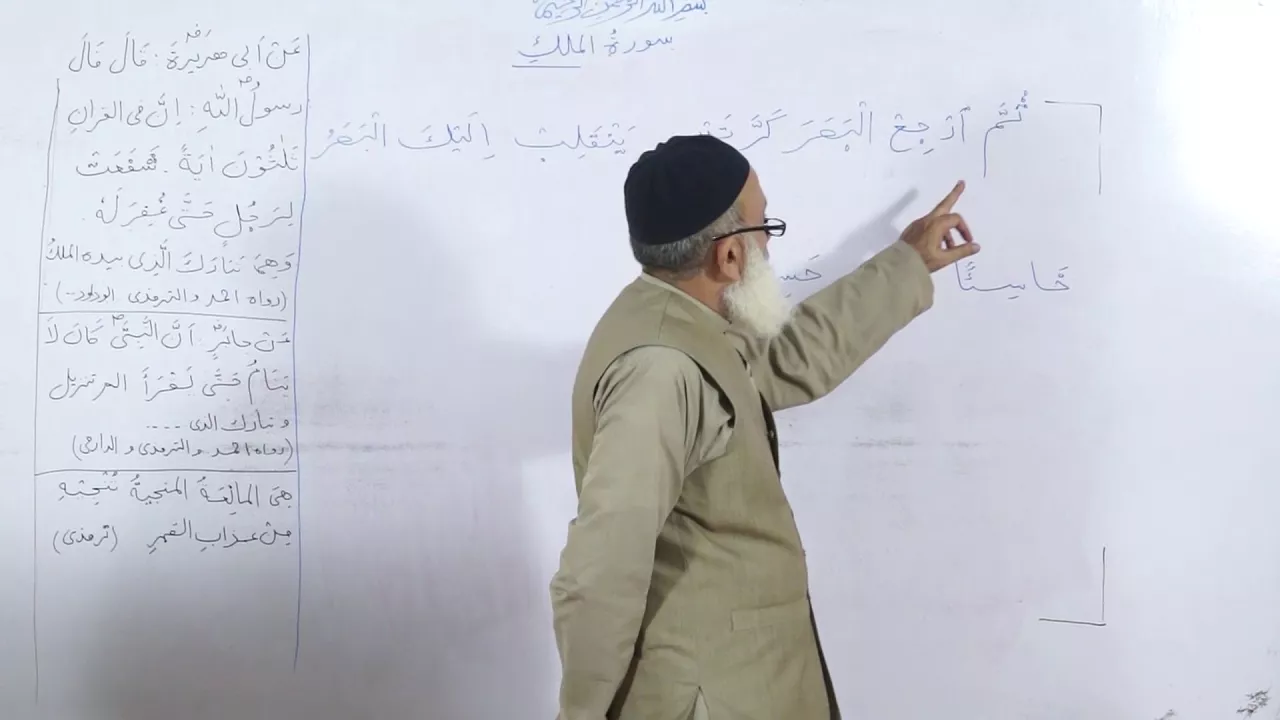 بسم الله الرحمن الرحيم
سورة الملك
ثُمَّ ٱرْجِعْ الْبَصَرَ كَرَّتَيْنِ يَنْقَلِبْ اِلَيْكَ الْبَصَرُ
خَاسِئًا
عَنْ اَبِى هُرَيْرَةَ : قَالَ قَالَ
رسولُ اللّٰهِ : اِنَّ فى القرانِ
ثَلٰثُوْنَ ايَةً . شَفَعَتْ
لِرَجُلٍ حَتّٰى غُفِرَ لَهُ .
وَهِىَ تَبَارَكَ الَّذِى بيده الملكُ
(رواه احمد والترمذى ابوداود..)
عَنْ جابرٍ : اَنَّ النَّبِىَّ كَانَ لَا
يَنَامُ حَتّٰى يَقْرَأَ الم تنزيل
و تبارك الذى ....
(رواه احمد والترمذى و الدارمى)
هِىَ المانِعَةُ المنجيةُ تُنْجِيْهِ
مِنْ عذابِ القبرِ (ترمذى)